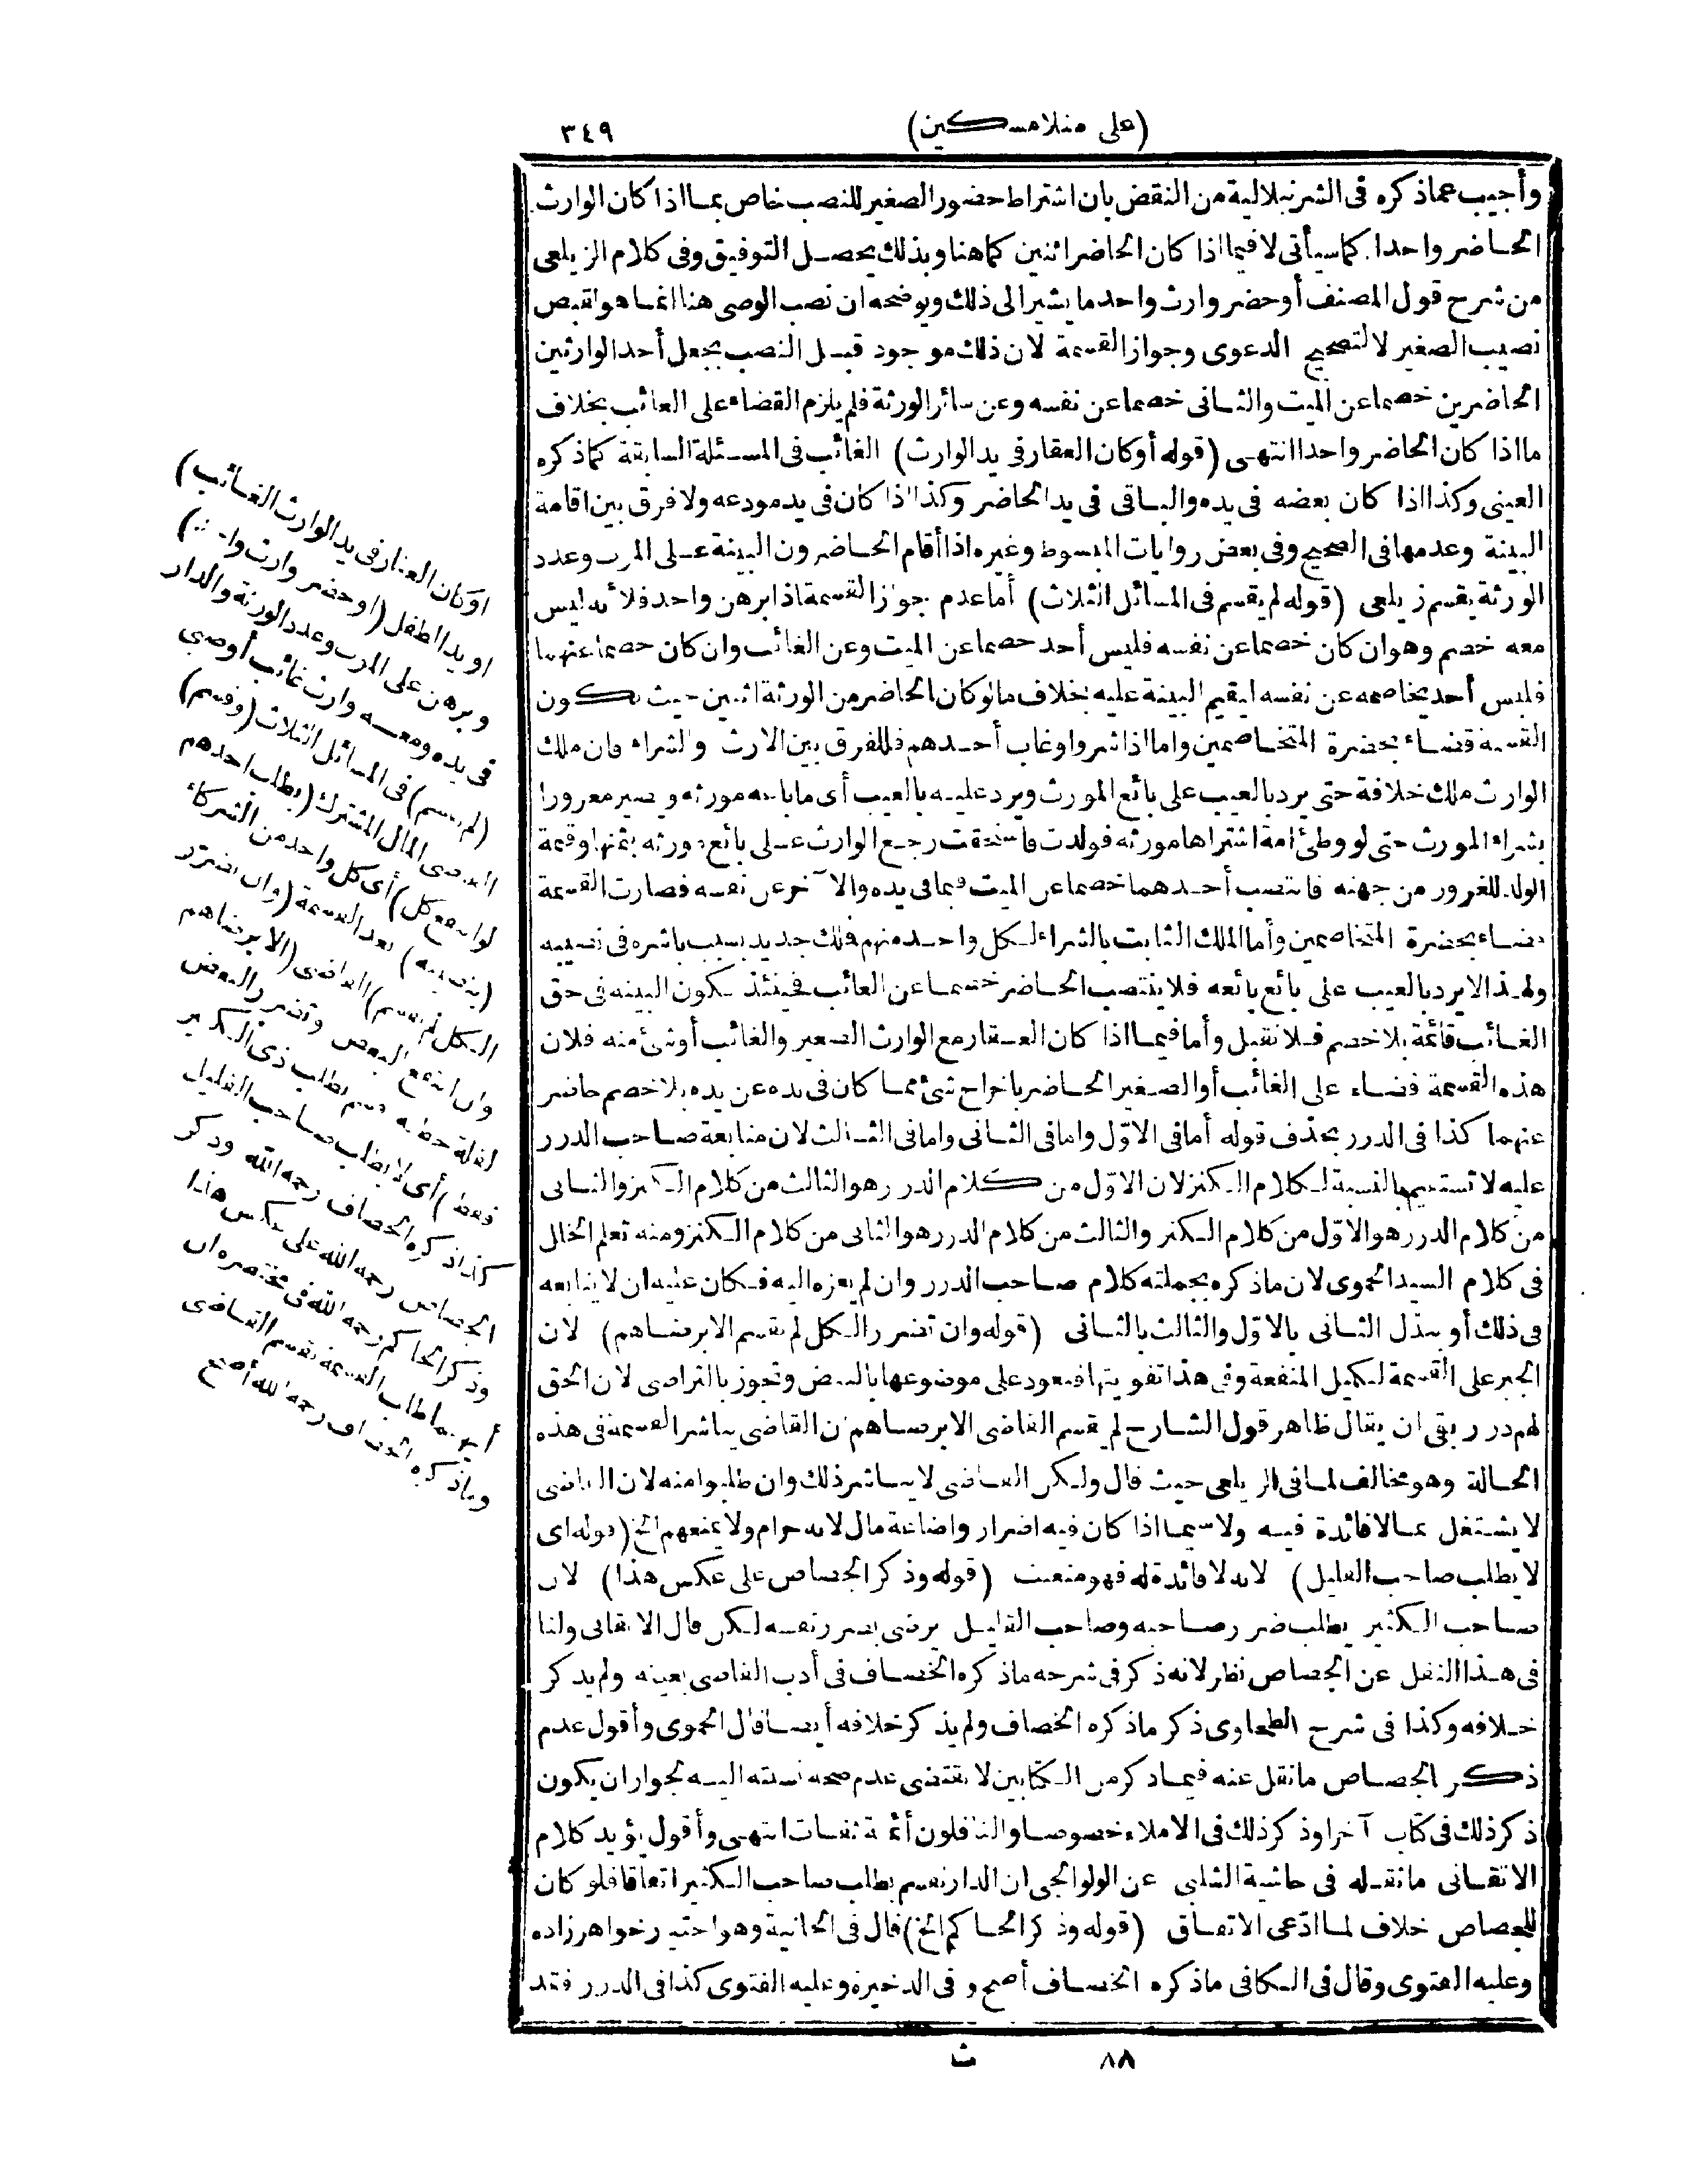 (على منلا مسكين)
٣٤٩
وأجيب عما ذكره فى الشرنبلالية من النقض بان اشتراط حضور الصغير للنصب خاص بما اذا كان الوارث
الحاضر واحدا كما سيأتى لا فيما اذا كان الحاضر اثنين كما هنا وبذلك يحصل التوفيق وفى كلام الزيلعى
من شرح قول المصنف أو حضر وارث واحد ما يشير الى ذلك ويوضحه ان نصب الوصى هنا انما هو لقبض
نصيب الصغير لا لتصحيح الدعوى وجواز القسمة لان ذلك موجود قبل النصب بجعل أحد الوارثين
الحاضرين خصما عن الميت والثانى خصما عن نفسه وعن سائر الورثة فلم يلزم القضاء على الغائب بخلاف
ما اذا كان الحاضر واحدا انتهى (قوله أو كان العقار فى يد الوارث) الغائب فى المسئلة السابقة كما ذكره
العينى وكذا اذا كان بعضه فى يده والباقى فى يد الحاضر وكذا اذا كان فى يد مودعه ولا فرق بين اقامة
البينة وعدمها فى الصحيح وفى بعض روايات المبسوط وغيره اذا أقام الحاضرون البينة على الموت وعدد
الورثة يقسم زيلعى (قوله لم يقسم فى المسائل الثلاث) أما عدم جواز القسمة اذا برهن واحد فلأنه ليس
معه خصم وهو ان كان خصما عن نفسه فليس أحد خصما عن الميت وعن الغائب وان كان خصما عنهما
فليس أحد يخاصمه عن نفسه ليقيم البينة عليه بخلاف ما لو كان الحاضر من الورثة اثنين حيث تكون
القسمة قضاء بحضرة المتخاصمين واما اذا شروا وغاب أحدهم فللفرق بين الارث والشراء فان ملك
الوارث ملك خلافة حتى يرد بالعيب على بائع المورث ويرد عليه بالعيب أى ما باعه مورثه ويصير مغرورا
بشراء المورث حتى لو وطئ امة اشتراها مورثه فولدت فاستحقت رجع الوارث على بائع مورثه بثمنها وقيمة
الولد للغرور من جهته فانتصب أحدهما خصما عن الميت فيما فى يده والآخر عن نفسه فصارت القسمة
قضاء بحضرة المتخاصمين وأما الملك الثابت بالشراء لكل واحد منهم فملك جديد بسبب باشره فى نصيبه
ولهذا لا يرد بالعيب على بائع بائعه فلا ينتصب الحاضر خصما عن الغائب فحينئذ تكون البينة فى حق
الغائب قائمة بلا خصم فلا تقبل وأما فيما اذا كان العقار مع الوارث الصغير والغائب أو شئ منه فلان
هذه القسمة قضاء على الغائب أو الصغير الحاضر باخراج شئ مما كان فى يده عن يده بلا خصم حاضر
عنهما كذا فى الدرر بحذف قوله أما فى الاوّل واما فى الثانى واما فى الثالث لان متابعة صاحب الدرر
عليه لا تستقيم بالنسبة لكلام الكنز لان الاوّل من كلام الدرر هو الثالث من كلام الكنز والثانى
من كلام الدرر هو الاوّل من كلام الكنز والثالث من كلام الدرر هو الثانى من كلام الكنز ومنه تعلم الخلل
فى كلام السيد الحموى لان ما ذكره بجملته كلام صاحب الدرر وان لم يعزه اليه فكان عليه ان لا يتابعه
فى ذلك أو يبدّل الثانى بالاوّل والثالث بالثانى (قوله وان تضرر الكل لم يقسم الا برضاهم) لان
الجبر على القسمة لتكميل المنفعة وفى هذا تفويتها فيعود على موضوعها بالنقض وتجوز بالتراضى لان الحق
لهم درر بقى ان يقال ظاهر قول الشارح لم يقسم القاضى الا برضاهم ان القاضى يباشر القسمة فى هذه
الحالة وهو مخالف لما فى الزيلعى حيث قال ولكن القاضى لا يباشر ذلك وان طلبوا منه لان القاضى
لا يشتغل بما لا فائدة فيه ولا سيما اذا كان فيه اضرار واضاعة مال لانه حرام ولا يمنعهم الخ (قوله اى
لا يطلب صاحب القليل) لانه لا فائدة له فهو متعنت (قوله وذكر الجصاص على عكس هذا) لان
صاحب الكثير يطلب ضرر صاحبه وصاحب القليل يرضى بضرر نفسه لكن قال الاتقانى ولنا
فى هذا النقل عن الجصاص نظر لانه ذكر فى شرحه ما ذكره الخصاف فى أدب القاضى بعينه ولم يذكر
خلافه وكذا فى شرح الطحاوى ذكر ما ذكره الخصاف ولم يذكر خلافه أيضا قال الحموى وأقول عدم
ذكر الجصاص ما نقل عنه فيما ذكر من الكتابين لا يقتضى عدم صحة نسبته اليه لجواز ان يكون
ذكر ذلك فى كتاب آخر او ذكر ذلك فى الاملاء خصوصا والناقلون أئمة ثقات انتهى وأقول يؤيد كلام
الاتقانى ما نقله فى حاشية الشلبى عن الولوالجى ان الدار تقسم بطلب صاحب الكثير اتفاقا فلو كان
للجصاص خلاف لما ادّعى الاتفاق (قوله وذكر الحاكم الخ) قال فى الخانية وهو اختيار خواهرزاده
وعليه الفتوى وقال فى الكافى ما ذكره الخصاف أصح وفى الذخيرة وعليه الفتوى كذا فى الدرر فقد
اوكان العقار فى يد الوارث الغائب)
او يد الطفل (او حضر وارث واحد)
وبرهن على الموت وعدد الورثة والدار
فى يده ومعه وارث غائب أو صبى
(لم يقسم) فى المسائل الثلاث (وقسم)
القاضى المال المشترك (بطلب احدهم
لو انتفع كل) أى كل واحد من الشركاء
(بنصيبه) بعد القسمة (وان تضرر
الكل لم يقسم) القاضى (الا برضاهم
وان انتفع البعض وتضرر البعض
لقلة حظه قسم بطلب ذى الكثير
فقط) أى لا يطلب صاحب القليل
كذا ذكره الخصاف رحمه الله وذكر
الجصاص رحمه الله على عكس هذا
وذكر الحاكم رحمه الله فى مختصره ان
أيهما طلب القسمة يقسم القاضى
وما ذكره الخصاف رحمه الله أصح
٨٨
ث